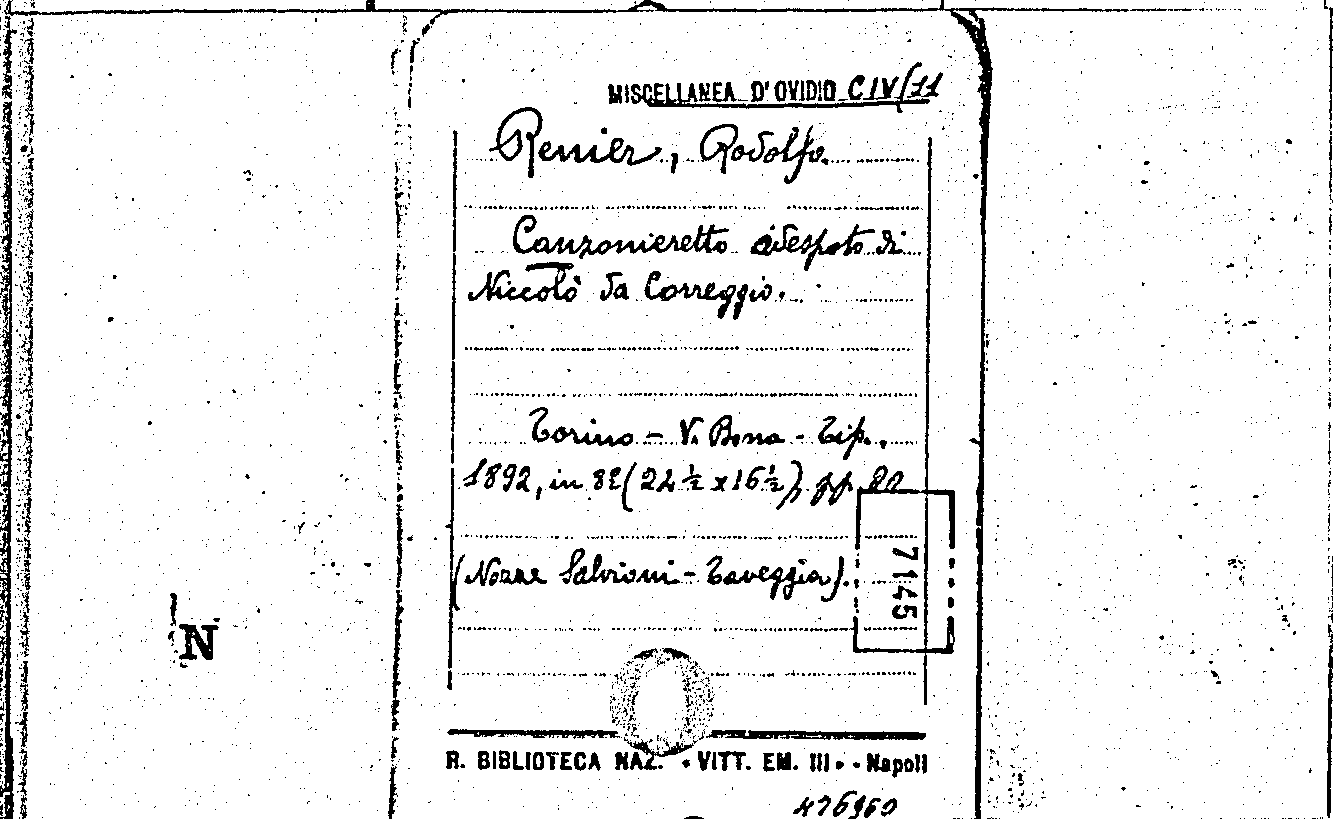 MISCELLANEA D'OVIDIO C IV/11
Renier, Rodolfo.
Canzonieretto adespoto di
Niccolò da Correggio.
Torino - V. Bona - Tip.
1892, in 8º (22 ½ x 16 ½), pp.
(Nozze Salvioni - Taveggia).
7145
N
R. BIBLIOTECA NAZ. • VITT. EM. III • - Napoli
476960